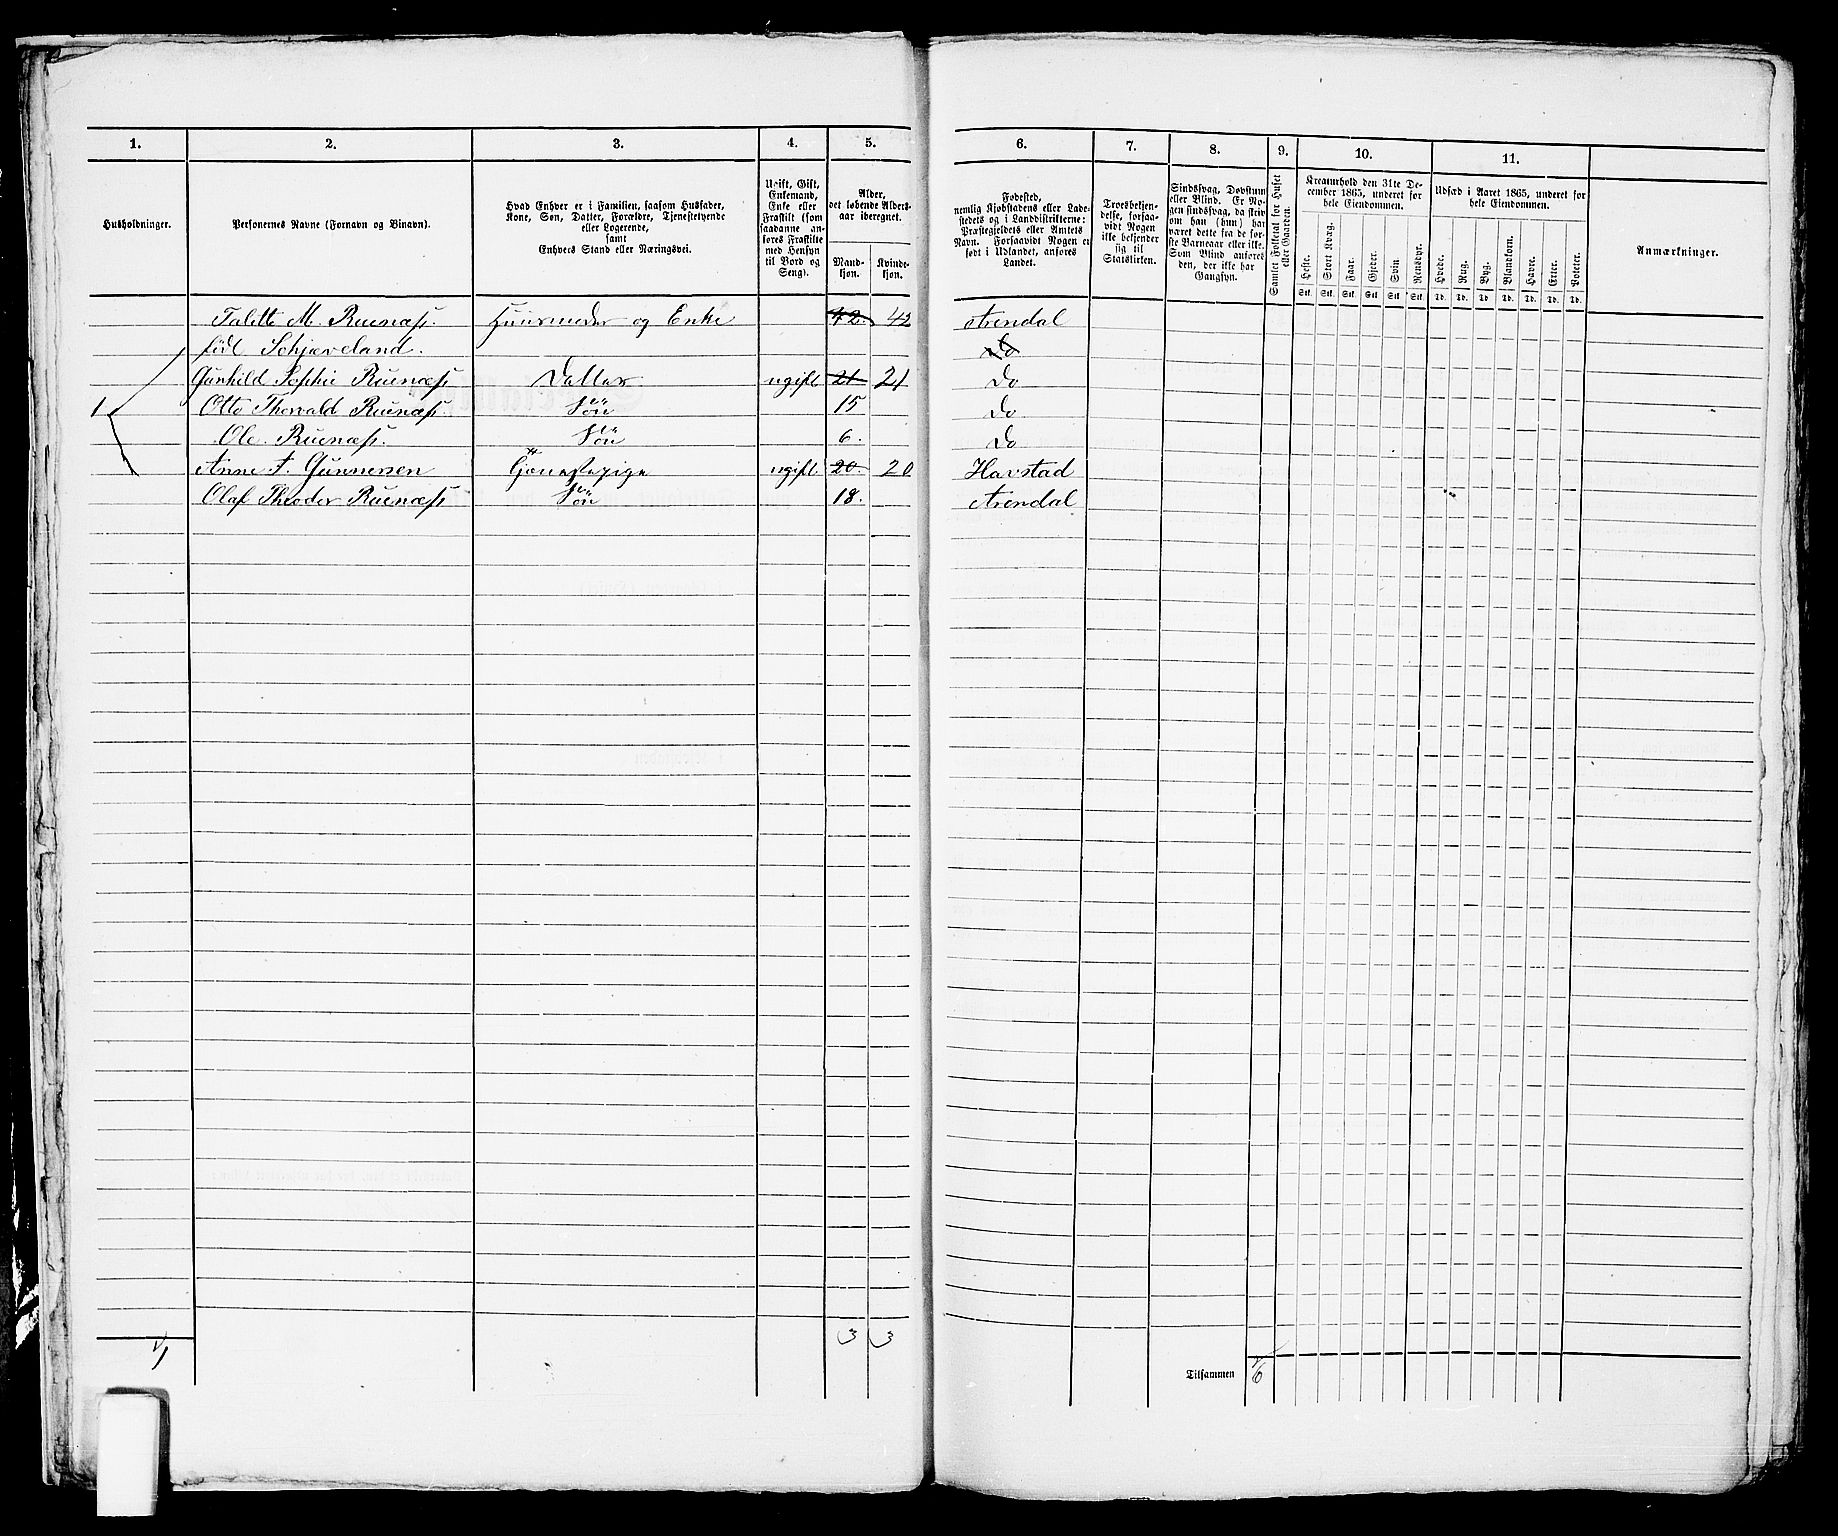 1. 2. 3. 4. 5. 6. 7. 8. 9. 10. 11.
Husholdninger.
Personernes Navne (Fornavn og Binavn).
Hvad Enhver er i Familien, saasom Husfader,
Kone, Søn, Datter, Forældre, Tjenestetyende
eller Logerende,
samt
Enhvers Stand eller Næringsvei.
Ugift, Gift,
Enkemand,
Enke eller
Fraskilt (som
saadanne an-
føres Fraskilte
med Hensyn
til Bord og
Seng).
Alder,
det løbende Alders-
aar iberegnet.
Mand-
kjøn.
Kvinde-
kjøn.
Fødested,
nemlig Kjøbstadens eller Lade-
stedets og i Landdistrikterne:
Præstegjeldets eller Amtets
Navn. Forsaavidt Nogen er
født i Udlandet, anføres
Landet.
Troesbekjen-
delse, forsaa-
vidt Nogen
ikke bekjender
sig til
Statskirken.
Sindssvag, Døvstum
eller Blind. Er No-
gen sindssvag, da skriv
om han (hun) har
været dette fra de før-
ste Barneaar eller ikke.
Som Blind anføres
den, der ikke har
Gangsyn.
Samlet Folketal for Huset
eller Gaarden.
Kreaturhold den 31te De-
cember 1865, underet for
hele Eiendommen.
Heste. Stort Kvæg. Faar. Gjeder. Svin. Rensdyr.
Stk. Stk. Stk. Stk. Stk. Stk.
Udsæd i Aaret 1865, underet for
hele Eiendommen.
Hvede. Rug. Byg. Blandkorn. Havre. Erter. Poteter.
Td. Td. Td. Td. Td. Td. Td.
Anmærkninger.
Talette M. Ruenæss. Huusmoder og Enke 42. 42 Arendal
født Schjæveland. Do
Gunhild Sophie Ruenæss Datter ugift 21 21 Do
1 Otto Thorvald Ruenæss. Søn 15 Do
Ole Ruenæss. Søn 6. Do
Anne A. Gunnersen Tjenestepige ugift 20. 20 Havstad
Olaf Theodor Ruenæss Søn 18. Arendal
1 3 3
Tilsammen 6